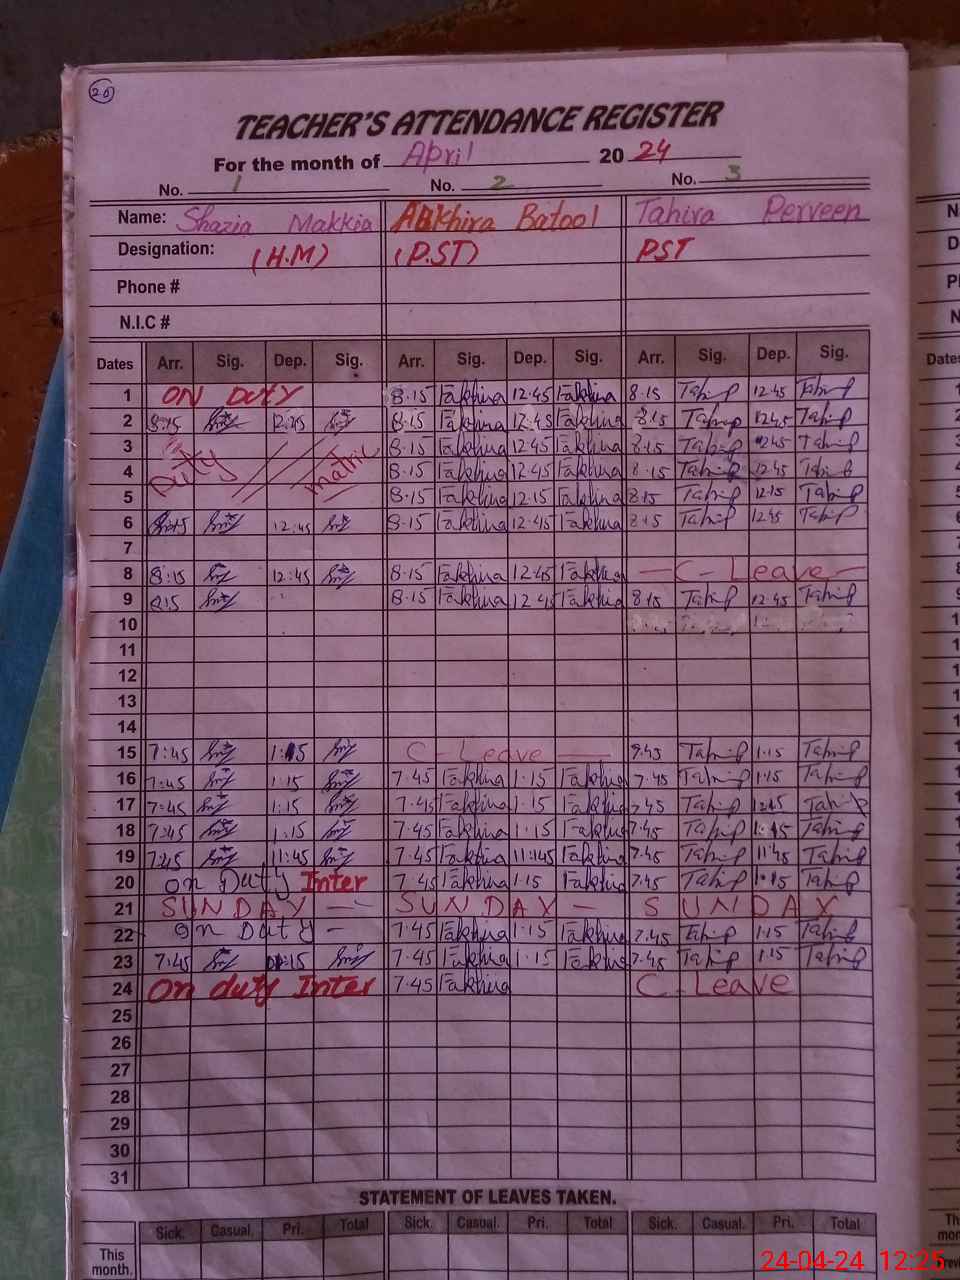 20
TEACHER'S ATTENDANCE REGISTER
For the month of April 2024
No. 1 No. 2 No. 3
Name: Shazia Makkia Fakhira Batool Tahira Perveen
Designation: (H.M) (P.ST) PST
Phone #
N.I.C #
Dates Arr. Sig. Dep. Sig. Arr. Sig. Dep. Sig. Arr. Sig. Dep. Sig.
1 ON DUTY 8.15 Fakhira 12.45 Fakhira 8.15 12.45
2 8:15 12:45 8.15 Fakhira 12.45 Fakhira 8.15 12.45
3 8.15 Fakhira 12.45 Fakhira 8.15 12.45
4 Duty matric 8.15 Fakhira 12.45 Fakhira 8.15 12.45
5 8.15 Fakhira 12.15 Fakhira 8.15 12.15
6 8:15 12:45 8.15 Fakhira 12.45 Fakhira 8.15 12.45
7
8 8:15 12:45 8.15 Fakhira 12.45 Fakhira C - Leave
9 8:15 8.15 Fakhira 12.45 Fakhira 8.15 12.45
10
11
12
13
14
15 7:45 1:15 C - Leave 1.15
16 7:45 1:15 7.45 Fakhira 1.15 Fakhira 7.45 1.15
17 7:45 1:15 7.45 Fakhira 1.15 Fakhira 7.45
18 7:45 1:15 7.45 Fakhira 1.15 Fakhira 7.45 1.15
19 7:45 11:45 7.45 Fakhira 11:45 Fakhira 7.45 11.45
20 On Duty Inter 7.45 Fakhira 1.15 Fakhira 7.45 1.15
21 SUNDAY SUNDAY SUNDAY
22 On Duty 7.45 Fakhira 1.15 Fakhira 7.45 1.15
23 7:45 1:15 7.45 Fakhira 1.15 Fakhira 7.45 1.15
24 On duty Inter 7.45 Fakhira C - Leave
25
26
27
28
29
30
31
STATEMENT OF LEAVES TAKEN.
Sick. Casual. Pri. Total Sick. Casual. Pri. Total Sick. Casual. Pri. Total
This
month.
24-04-24 12:25